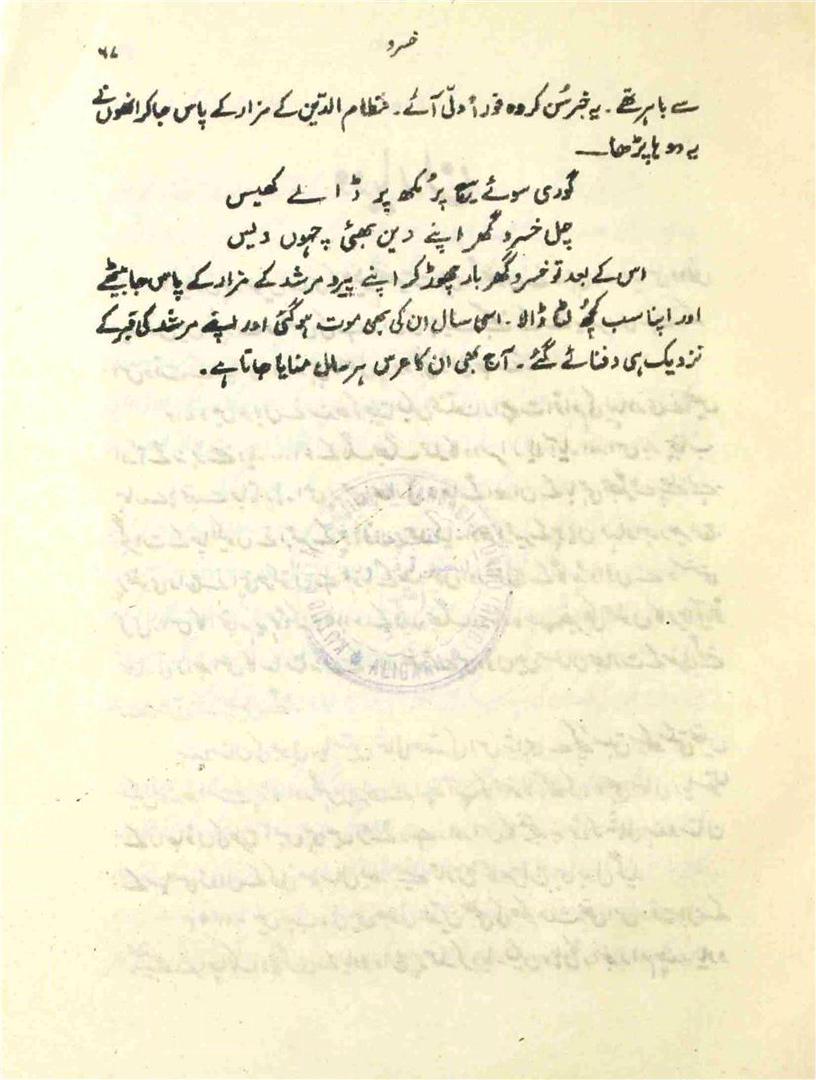 خسرو ۶۷
سے باہر تھے۔ یہ خبر سُن کر وہ فوراً دلّی آئے۔ نظام الدّین کے مزار کے پاس جا کر انھوں نے
یہ دوہا پڑھا—
گوری سوئے سیج پر مُکھ پر ڈالے کھیس
چل خسرو گھر اپنے رین بھئی چہوں دیس
اس کے بعد تو خسرو گھر بار چھوڑ کر اپنے پیر و مرشد کے مزار کے پاس جا بیٹھے
اور اپنا سب کچھ لٹا ڈالا۔ اسی سال ان کی بھی موت ہو گئی اور اپنے مرشد کی قبر کے
نزدیک ہی دفنائے گئے۔ آج بھی ان کا عرس ہر سال منایا جاتا ہے۔